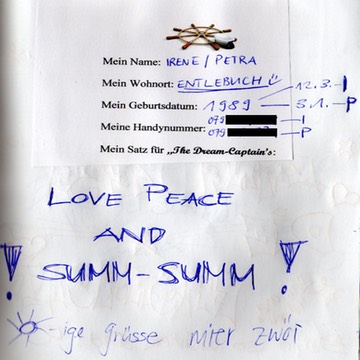 Mein Name: IRENE / PETRA
Mein Wohnort: ENTLEBUCH
Mein Geburtsdatum: 1989 12.3.-I
3.1.-P
Meine Handynummer: 079 -I
079 -P
Mein Satz für „The Dream-Captain's:
LOVE PEACE
AND
! SUMM-SUMM !
-ige grüsse zwöi